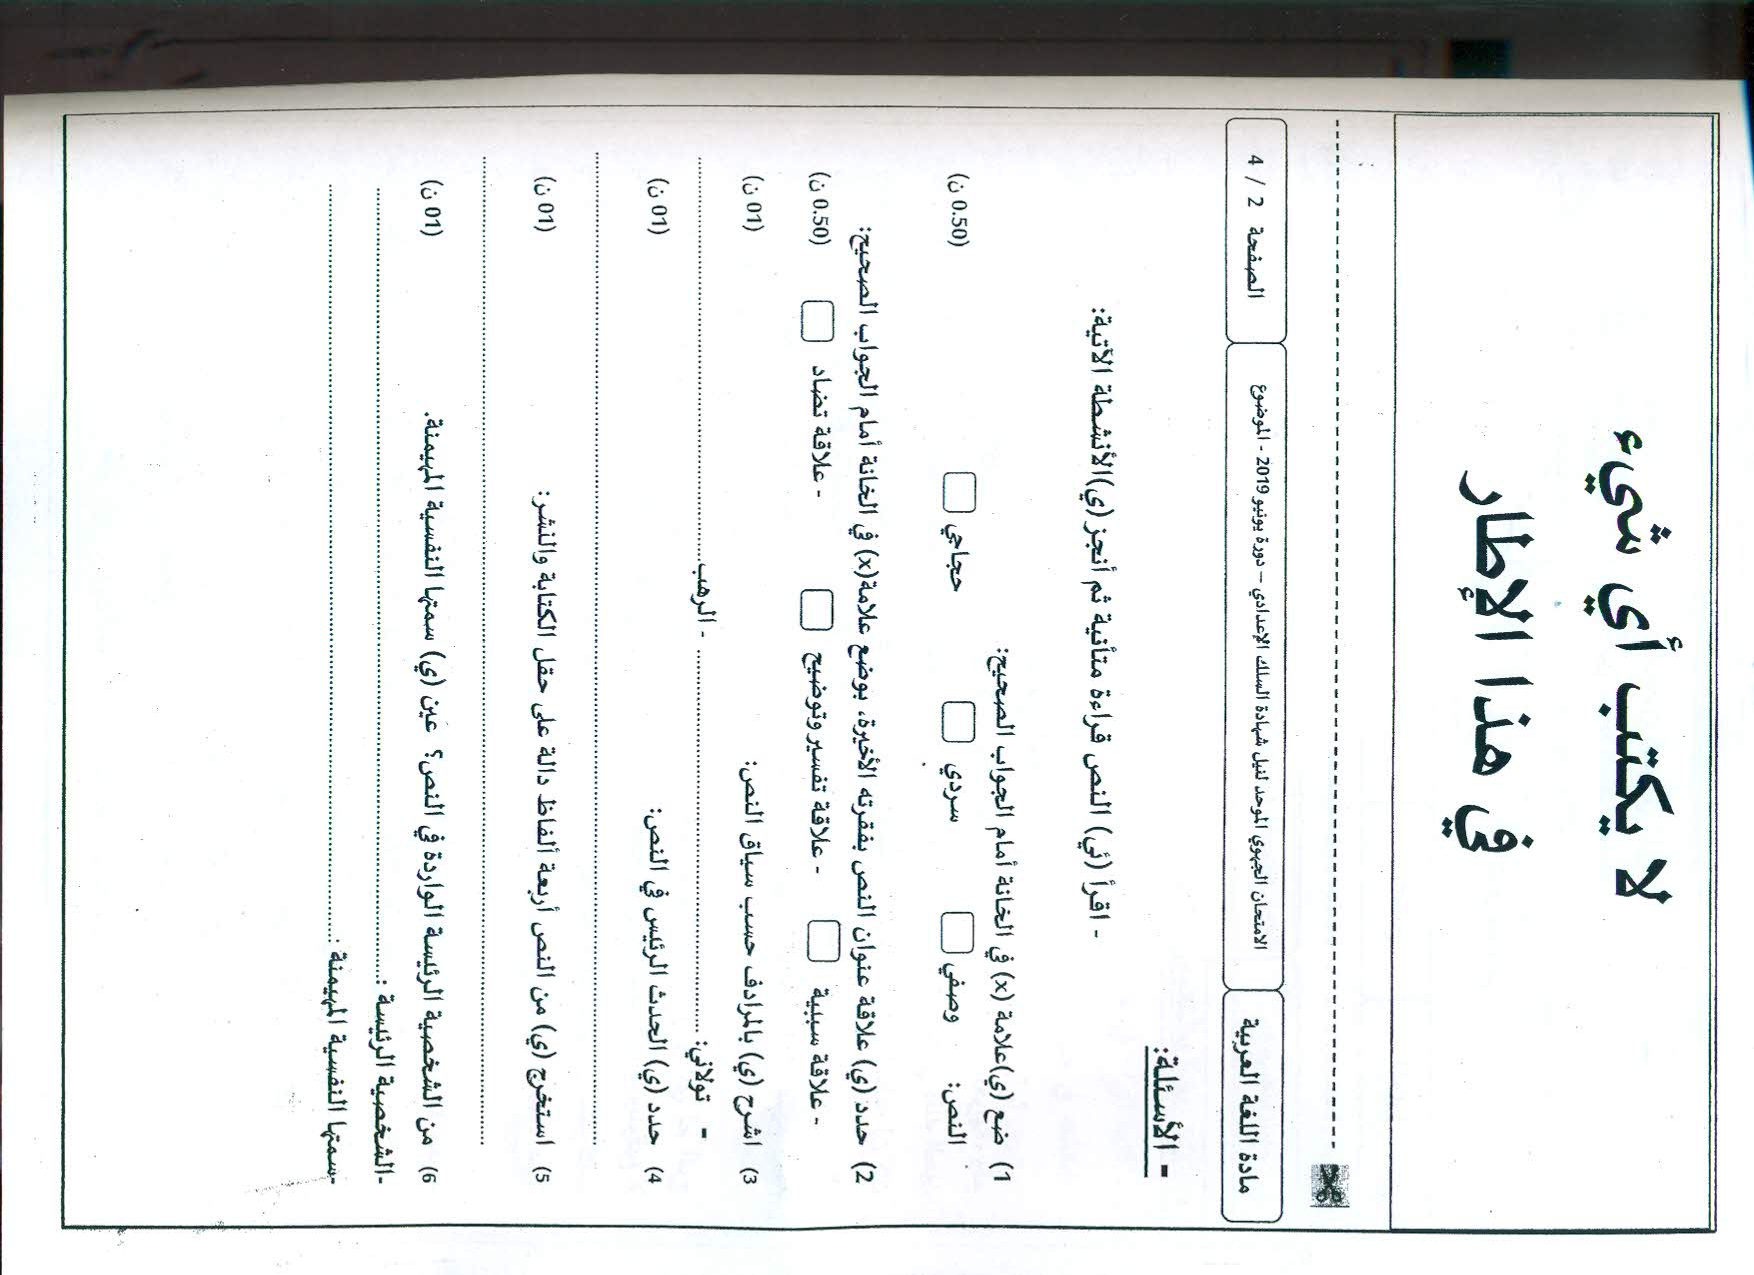 لا يكتب أي شيء
في هذا الإطار
مادة اللغة العربية الامتحان الجهوي الموحد لنيل شهادة السلك الإعدادي – دورة يونيو 2019 - الموضوع الصفحة 2 / 4
- الأسئلة:
- اقرأ (ئي) النص قراءة متأنية ثم أنجز (ي)الأنشطة الآتية:
1) ضع (ي)علامة (x) في الخانة أمام الجواب الصحيح:
النص: وصفي سردي حجاجي (0.50 ن)
2) حدد (ي) علاقة عنوان النص بفقرته الأخيرة، بوضع علامة(x) في الخانة أمام الجواب الصحيح:
- علاقة سببية - علاقة تفسير وتوضيح - علاقة تضاد (0.50 ن)
3) اشرح (ي) بالمرادف حسب سياق النص: (01 ن)
- تولاني: ........................ - الرهب ........................
4) حدد (ي) الحدث الرئيس في النص: (01 ن)
........................
5) استخرج (ي) من النص أربعة ألفاظ دالة على حقل الكتابة والنشر: (01 ن)
........................
6) من الشخصية الرئيسة الواردة في النص؟ عين (ي) سمتها النفسية المهيمنة. (01 ن)
-الشخصية الرئيسة : ........................
-سمتها النفسية المهيمنة : ........................